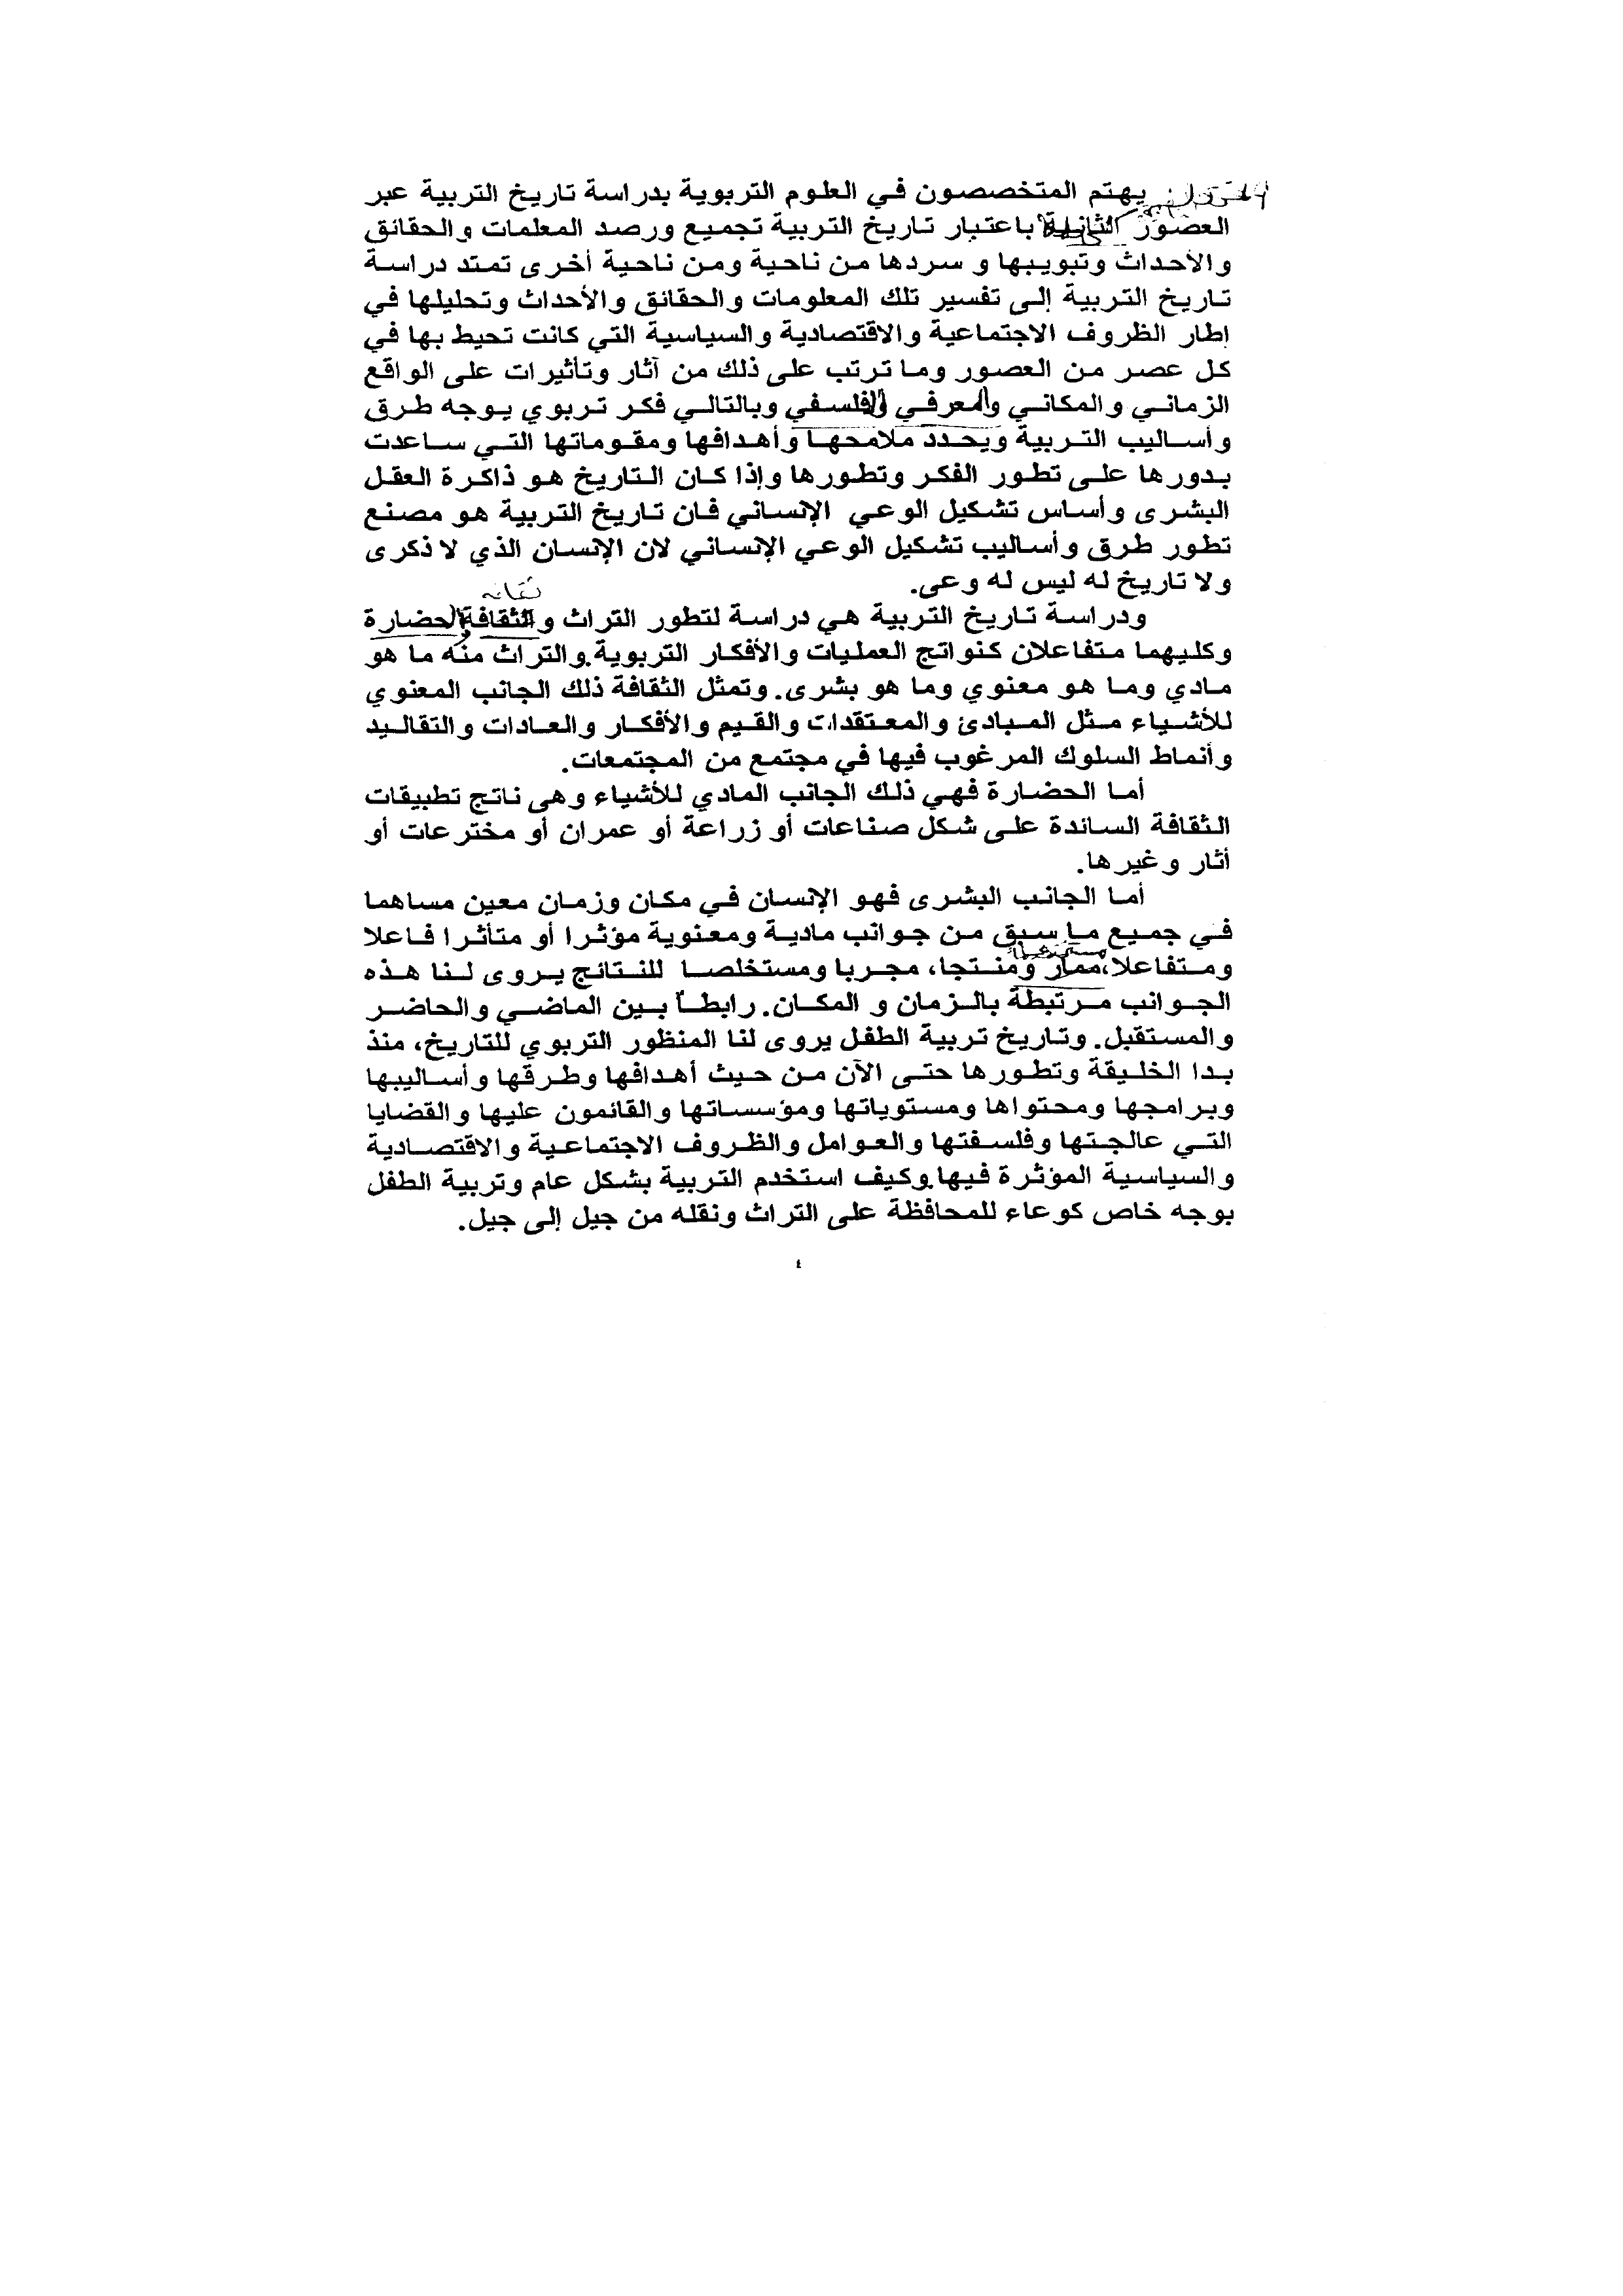 يهتم المتخصصون في العلوم التربوية بدراسة تاريخ التربية عبر
العصور باعتبار تاريخ التربية تجميع ورصد المعلمات والحقائق
والأحداث وتبويبها و سردها من ناحية ومن ناحية أخرى تمتد دراسة
تاريخ التربية إلى تفسير تلك المعلومات والحقائق والأحداث وتحليلها في
إطار الظروف الاجتماعية والاقتصادية والسياسية التي كانت تحيط بها في
كل عصر من العصور وما ترتب على ذلك من آثار وتأثيرات على الواقع
الزماني والمكاني والمعرفي والفلسفي وبالتالي فكر تربوي يوجه طرق
وأساليب التربية ويحدد ملامحها وأهدافها ومقوماتها التي ساعدت
بدورها على تطور الفكر وتطورها وإذا كان التاريخ هو ذاكرة العقل
البشرى وأساس تشكيل الوعي الإنساني فان تاريخ التربية هو مصنع
تطور طرق وأساليب تشكيل الوعي الإنساني لان الإنسان الذي لا ذكرى
ولا تاريخ له ليس له وعى.
ودراسة تاريخ التربية هي دراسة لتطور التراث والثقافة والحضارة
وكليهما متفاعلان كنواتج العمليات والأفكار التربوية.والتراث منه ما هو
مادي وما هو معنوي وما هو بشرى. وتمثل الثقافة ذلك الجانب المعنوي
للأشياء مثل المبادئ والمعتقدات والقيم والأفكار والعادات والتقاليد
وأنماط السلوك المرغوب فيها في مجتمع من المجتمعات.
أما الحضارة فهي ذلك الجانب المادي للأشياء وهى ناتج تطبيقات
الثقافة السائدة على شكل صناعات أو زراعة أو عمران أو مخترعات أو
أثار وغيرها.
أما الجانب البشرى فهو الإنسان في مكان وزمان معين مساهما
في جميع ما سبق من جوانب مادية ومعنوية مؤثرا أو متأثرا فاعلا
ومتفاعلا، ومنتجا، مجربا ومستخلصا للنتائج يروى لنا هذه
الجوانب مرتبطة بالزمان و المكان. رابطاً بين الماضي والحاضر
والمستقبل. وتاريخ تربية الطفل يروى لنا المنظور التربوي للتاريخ، منذ
بدا الخليقة وتطورها حتى الآن من حيث أهدافها وطرقها وأساليبها
وبرامجها ومحتواها ومستوياتها ومؤسساتها والقائمون عليها والقضايا
التي عالجتها وفلسفتها والعوامل والظروف الاجتماعية والاقتصادية
والسياسية المؤثرة فيها.وكيف استخدم التربية بشكل عام وتربية الطفل
بوجه خاص كوعاء للمحافظة على التراث ونقله من جيل إلى جيل.
٤